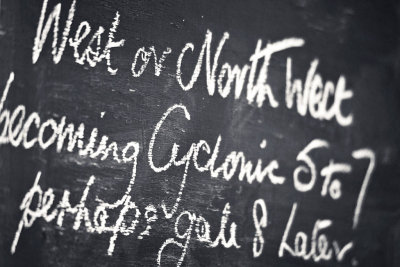 West or North West
becoming Cyclonic 5 to 7
perhaps gale 8 Later.